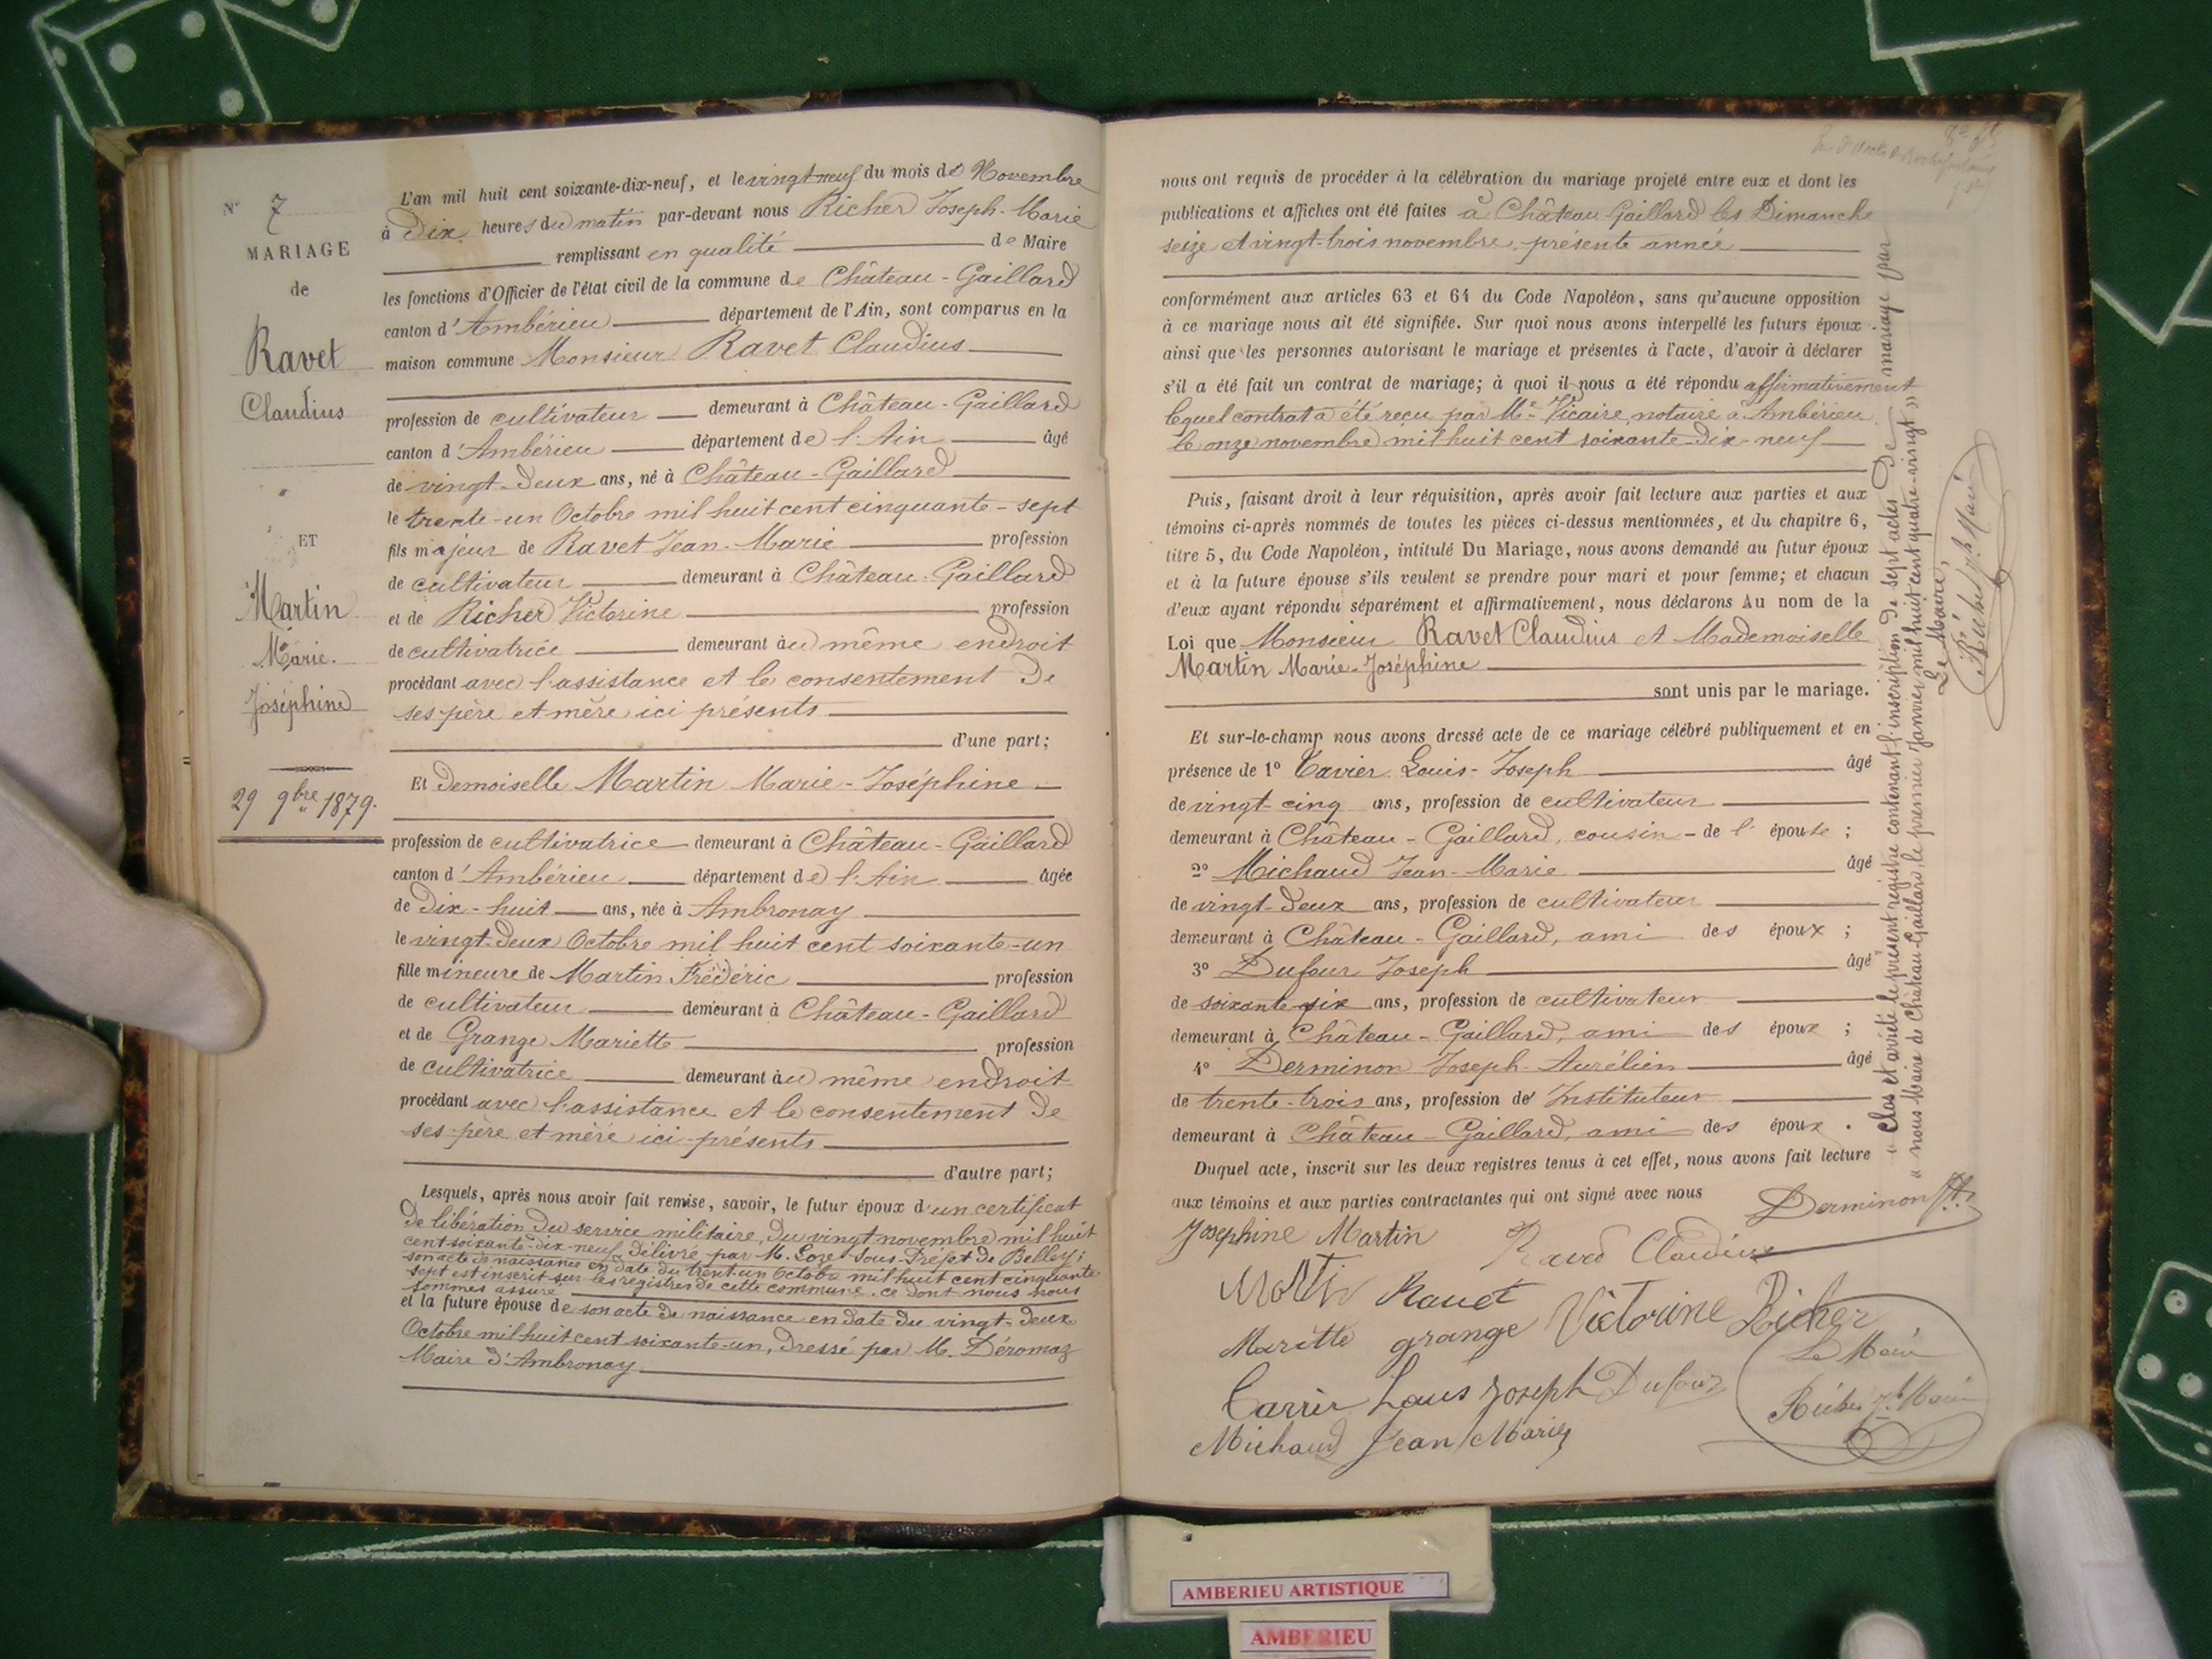 N° 7
MARIAGE
de
Ravet
Claudius
ET
Martin
Marie.
Joséphine
29 9bre 1879.
L'an mil huit cent soixante-dix-neuf, et le vingt neuf du mois de Novembre
à Dix heures du matin par-devant nous Richer Joseph-Marie
remplissant en qualité de Maire
les fonctions d'Officier de l'état civil de la commune de Château-Gaillard
canton d'Ambérieu département de l'Ain, sont comparus en la
maison commune Monsieur Ravet Claudius
profession de cultivateur demeurant à Château-Gaillard
canton d'Ambérieu département de l'Ain âgé
de vingt-deux ans, né à Château-Gaillard
le trente-un Octobre mil huit cent cinquante-sept
fils majeur de Ravet Jean-Marie profession
de cultivateur demeurant à Château-Gaillard
et de Richer Victorine profession
de cultivatrice demeurant au même endroit
procédant avec l'assistance et le consentement de
ses père et mère ici présents
d'une part;
Et Demoiselle Martin Marie-Joséphine
profession de cultivatrice demeurant à Château-Gaillard
canton d'Ambérieu département de l'Ain âgée
de Dix-huit ans, née à Ambronay
le vingt-deux Octobre mil huit cent soixante-un
fille mineure de Martin Frédéric profession
de cultivateur demeurant à Château-Gaillard
et de Grange Mariette profession
de cultivatrice demeurant au même endroit
procédant avec l'assistance et le consentement de
ses père et mère ici présents
d'autre part;
Lesquels, après nous avoir fait remise, savoir, le futur époux d'un certificat
de libération du service militaire, du vingt novembre mil huit
cent soixante-dix-neuf, délivré par M. Sous-Préfet de Belley;
son acte de naissance en date du trent-un Octobre mil huit cent cinquante
sept est inscrit sur les registres de cette commune, ce dont nous nous
sommes assuré
et la future épouse de son acte de naissance en date du vingt-deux
Octobre mil huit cent soixante-un, dressé par M. Déromaz
Maire d'Ambronay
nous ont requis de procéder à la célébration du mariage projeté entre eux et dont les
publications et affiches ont été faites à Château-Gaillard les Dimanche
seize et vingt-trois novembre, présente année
conformément aux articles 63 et 64 du Code Napoléon, sans qu'aucune opposition
à ce mariage nous ait été signifiée. Sur quoi nous avons interpellé les futurs époux
ainsi que les personnes autorisant le mariage et présentes à l'acte, d'avoir à déclarer
s'il a été fait un contrat de mariage; à quoi il nous a été répondu affirmativement
lequel contrat a été reçu par Me Vicaire, notaire à Ambérieu
le onze novembre mil huit cent soixante-dix-neuf
Puis, faisant droit à leur réquisition, après avoir fait lecture aux parties et aux
témoins ci-après nommés de toutes les pièces ci-dessus mentionnées, et du chapitre 6,
titre 5, du Code Napoléon, intitulé Du Mariage, nous avons demandé au futur époux
et à la future épouse s'ils veulent se prendre pour mari et pour femme; et chacun
d'eux ayant répondu séparément et affirmativement, nous déclarons Au nom de la
Loi que Monsieur Ravet Claudius et Mademoiselle
Martin Marie-Joséphine
sont unis par le mariage.
Et sur-le-champ nous avons dressé acte de ce mariage célébré publiquement et en
présence de 1° Louis-Joseph âgé
de vingt-cinq ans, profession de cultivateur
demeurant à Château-Gaillard, cousin de l'épouse;
2° Michaud Jean-Marie âgé
de vingt-deux ans, profession de cultivateur
demeurant à Château-Gaillard, ami des époux;
3° Dufour Joseph âgé
de soixante six ans, profession de cultivateur
demeurant à Château-Gaillard, ami des époux;
4° Derminon Joseph-Aurélien âgé
de trente-trois ans, profession de Instituteur
demeurant à Château-Gaillard, ami des époux.
Duquel acte, inscrit sur les deux registres tenus à cet effet, nous avons fait lecture
aux témoins et aux parties contractantes qui ont signé avec nous
Derminon
Josephine Martin Claudius
Ravet
Victorine Richer
grange
Louis Joseph Dufour
Michaud Jean Marie
Le Maire
Richer
« Clos et arrêté le présent registre contenant l'inscription de sept actes de mariage par
« nous Maire de Château-Gaillard, le premier Janvier mil huit cent quatre-vingt »
Le Maire,
AMBERIEU ARTISTIQUE
AMBERIEU